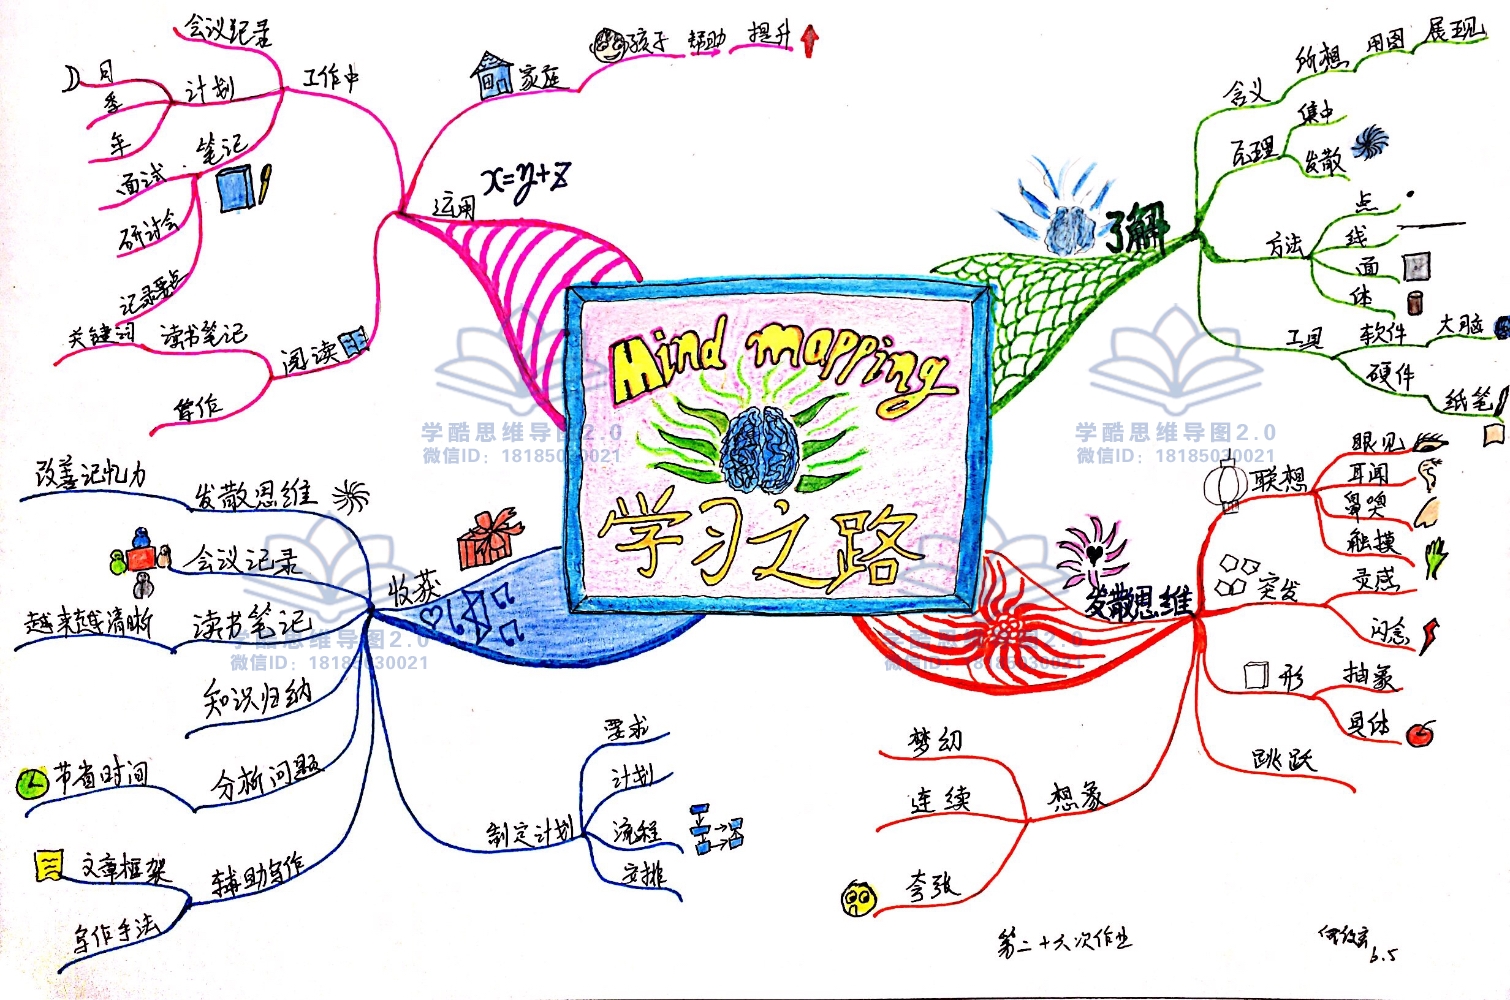 Mind mapping
学习之路
了解
含义
所想
用图
展现
原理
集中
发散
方法
点
线
面
体
工具
软件
大脑
硬件
纸笔
发散思维
联想
眼见
耳闻
鼻嗅
触摸
突发
灵感
闪念
形
抽象
具体
跳跃
想象
梦幻
连续
夸张
收获
发散思维
改善记忆力
会议记录
读书笔记
越来越清晰
知识归纳
分析问题
节省时间
辅助写作
文章框架
写作手法
制定计划
要求
计划
流程
安排
运用
x=y+z
工作中
会议纪录
计划
月
季
年
笔记
面试
研讨会
记录要点
阅读
读书笔记
关键词
写作
家庭
孩子
帮助
提升
第二十六次作业
6.5
学酷思维导图2.0
微信ID: 18185030021
学酷思维导图2.0
微信ID: 18185030021
学酷思维导图2.0
微信ID: 18185030021
学酷思维导图2.0
微信ID: 18185030021